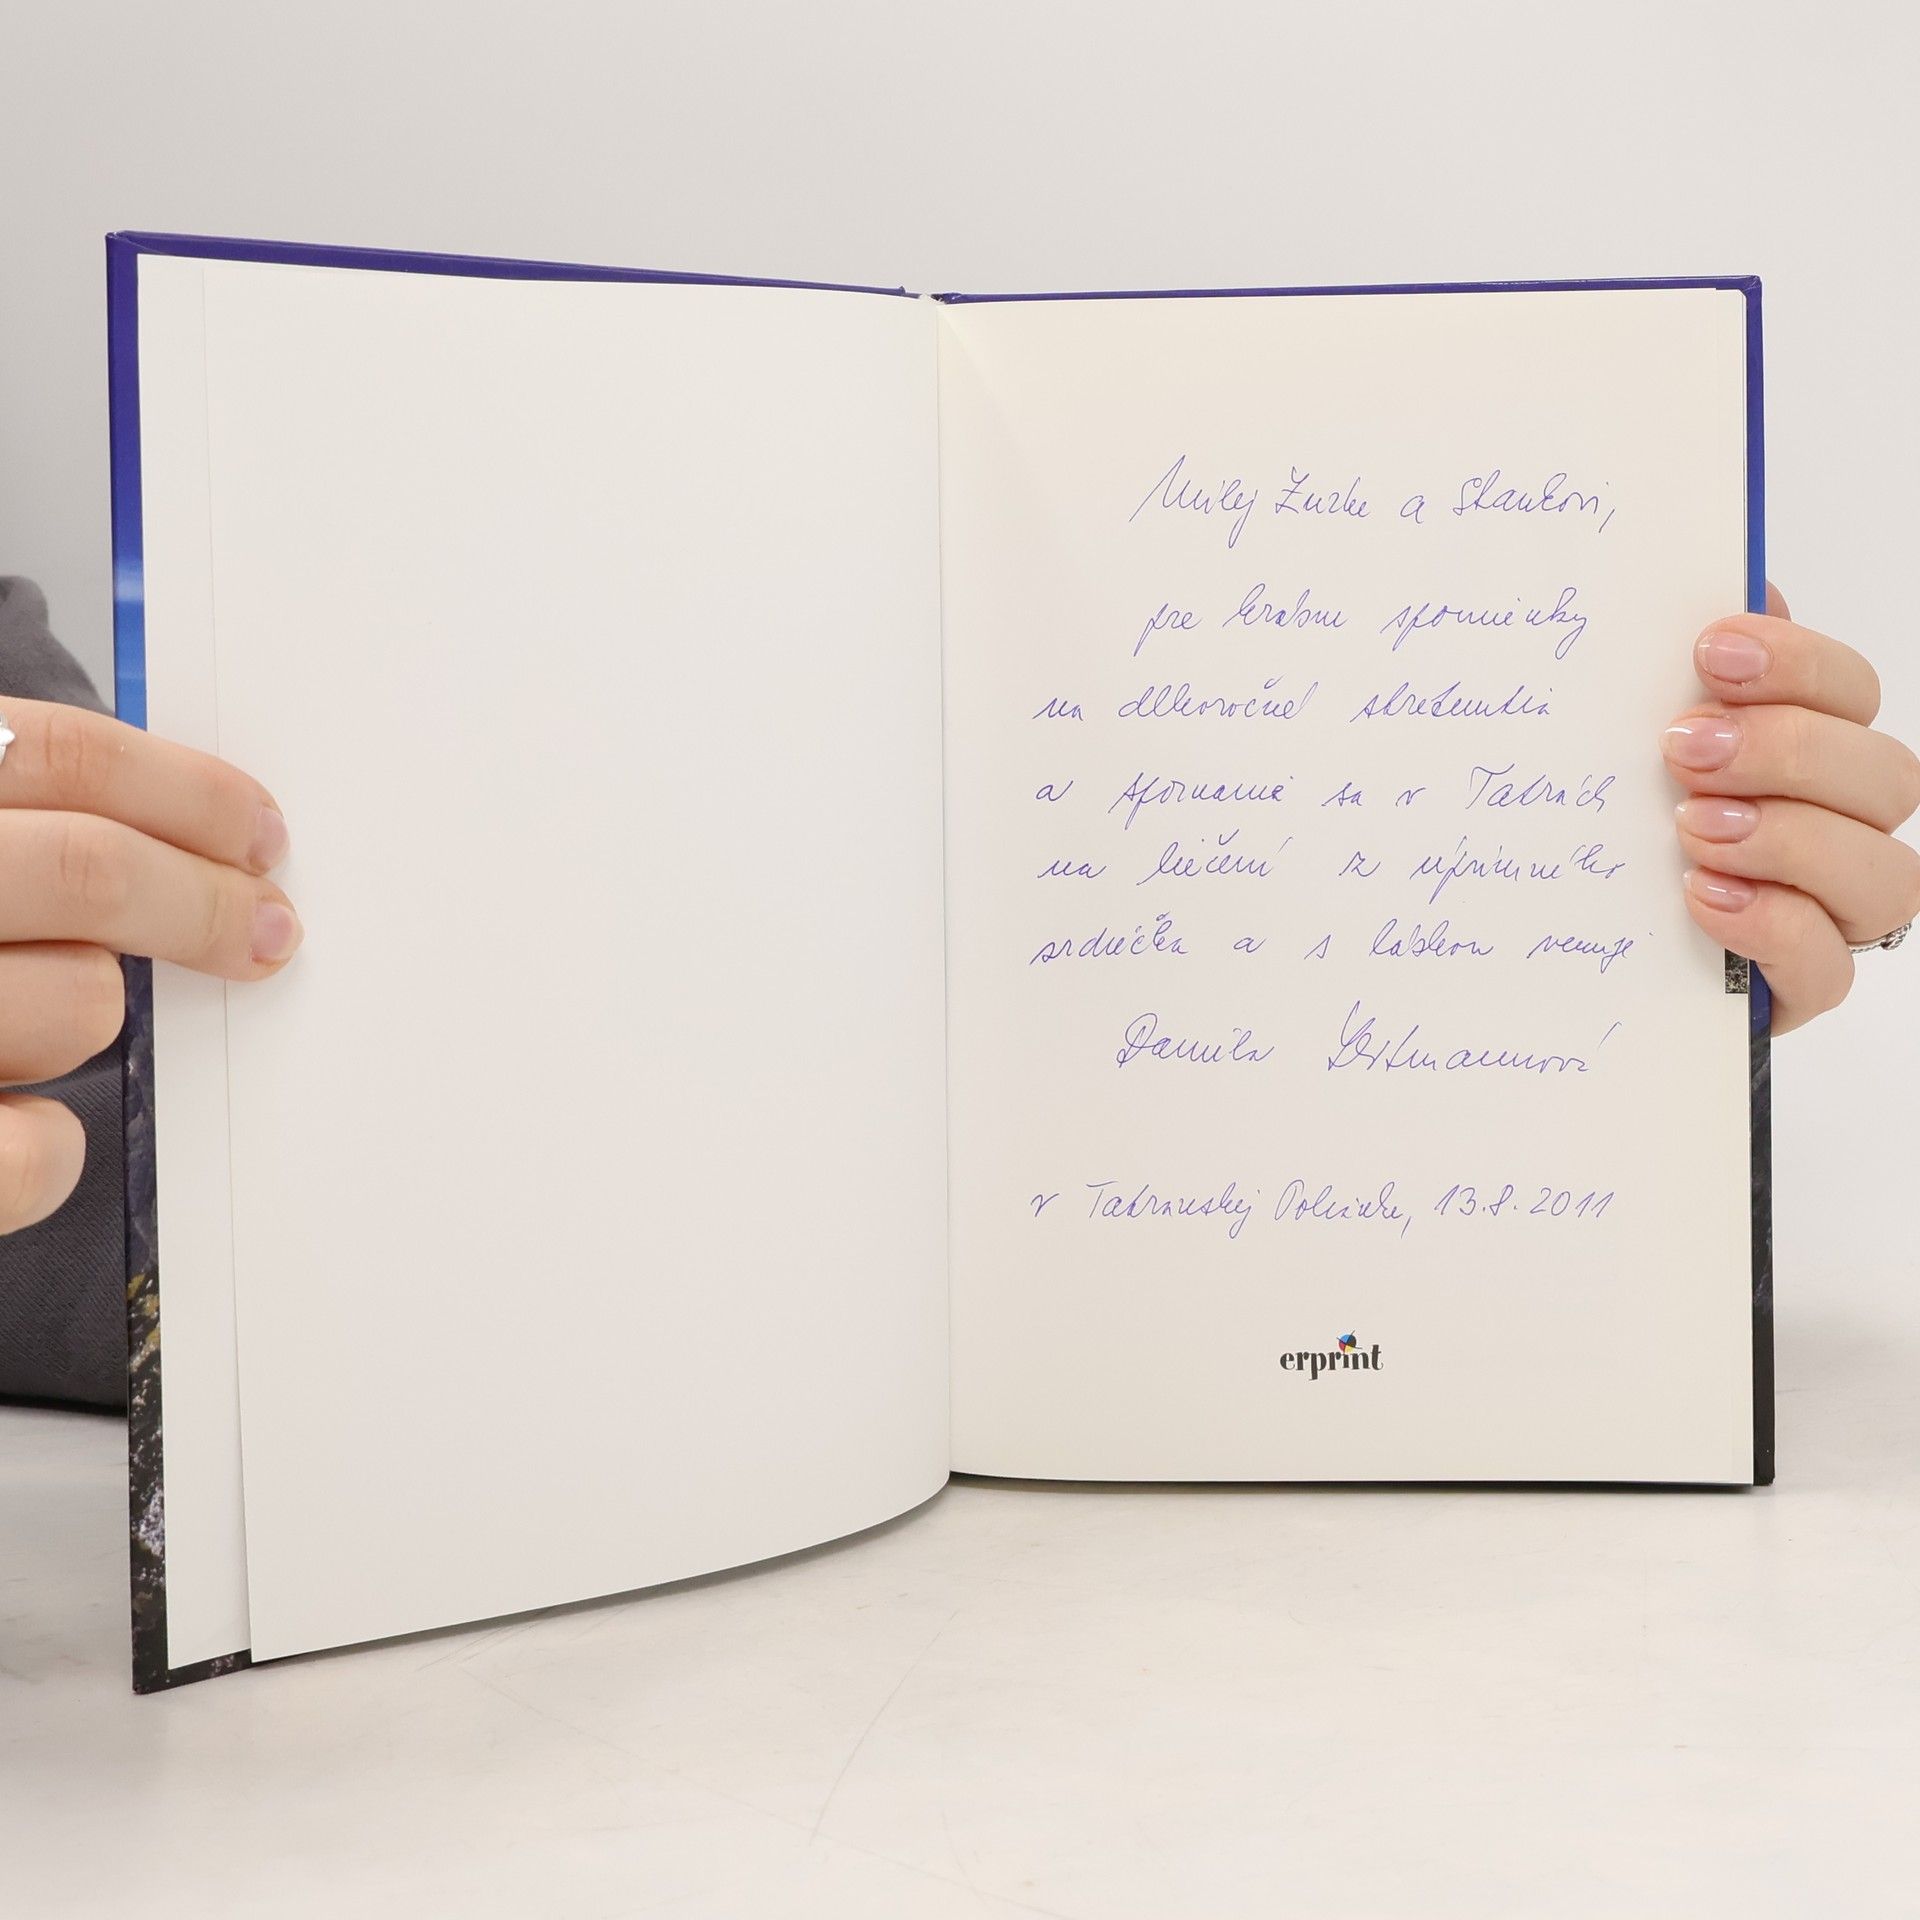 Milej Zuzke a Stankovi,
pre krásne spomienky
na dlhoročné stretnutia
a spoznanie sa v Tatrách
na liečení z úprimného
srdiečka a s láskou venuje
Danila
v Tatranskej Polianke, 13.8.2011
erprint